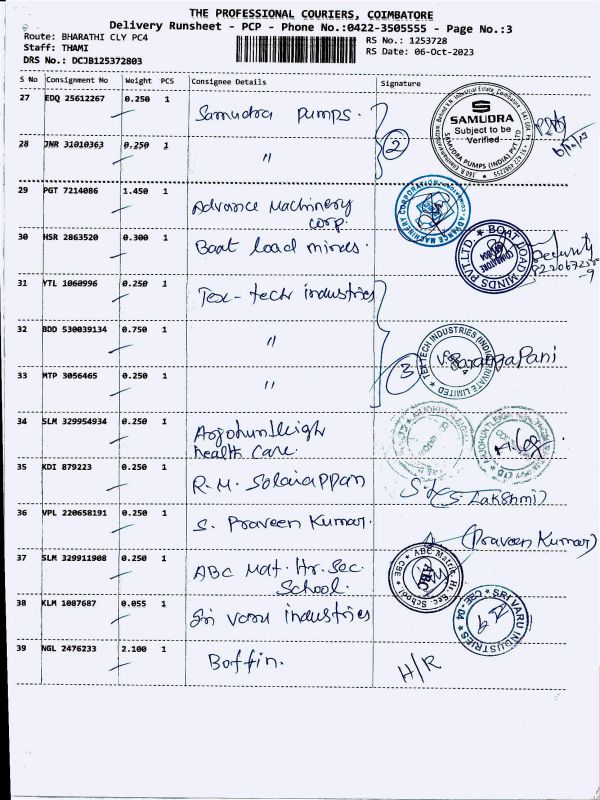 THE PROFESSIONAL COURIERS, COIMBATORE
Delivery Runsheet - PCP - Phone No.:0422-3505555 - Page No.:3
Route: BHARATHI CLY PC4
RS No.: 1253728
Staff: THAMI
RS Date: 06-Oct-2023
DRS No.: DCJB125372803
S No Consignment No Weight PCS Consignee Details Signature
27 EDQ 25612267 0.250 1 Samudra Pumps.
SAMUDRA
Subject to be
Verified
SAMUDRA PUMPS (INDIA) PVT LTD
28 JNR 31010363 0.250 1 "
2
29 PGT 7214086 1.450 1 Advance Machinery
corp.
ADVANCE MACHINERY CORPORATION
30 HSR 2863520 0.300 1 Boat load mines.
BOAT LOAD MINDS PVT LTD
Security
31 YTL 1060996 0.250 1 Tex-tech industries
32 BDD 530039134 0.750 1 "
TEXTECH INDUSTRIES (INDIA) PRIVATE LIMITED
SarangaPani
33 MTP 3056465 0.250 1 "
3
34 SLM 329954934 0.250 1 Arjohuntleigh
health Care.
35 KDI 879223 0.250 1 R.M. Solaiappan
(S. Lakshmi)
36 VPL 220658191 0.250 1 S. Praveen Kumar.
(Praveen Kumar)
37 SLM 329911908 0.250 1 ABC Mat. Hr. Sec.
School.
ABC Matric. Hr. Sec. School
CBE
ABC
38 KLM 1087687 0.055 1 Sri varu industries
SRI VARU INDUSTRIES
CBE-04
39 NGL 2476233 2.100 1 Boffin.
H/R